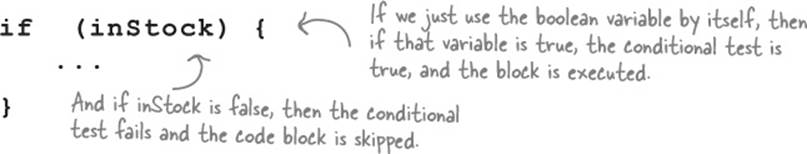 if (inStock) {
If we just use the boolean variable by itself, then
if that variable is true, the conditional test is
true, and the block is executed.
...
And if inStock is false, then the conditional
test fails and the code block is skipped.
}